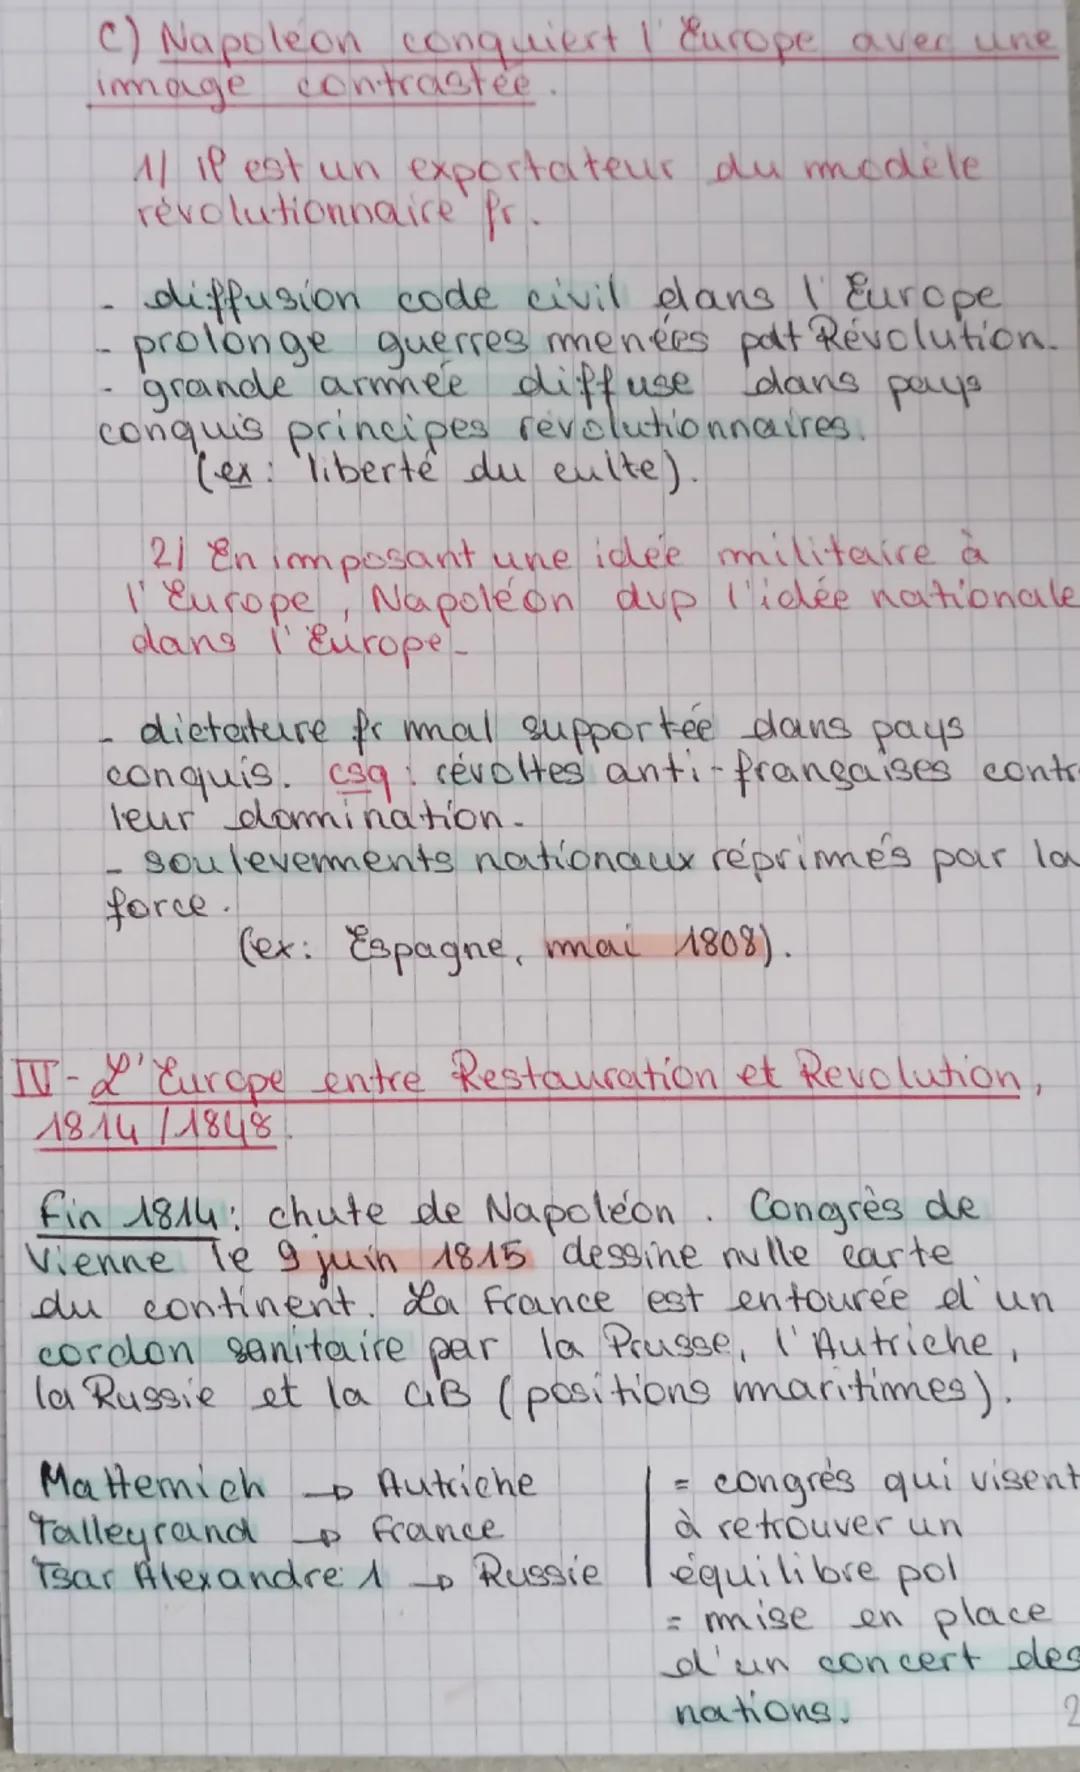 C) Napoléon conquiert l'Europe avec une
image contrastée.
1/ il est un exportateur du modèle
révolutionnaire fr.
- diffusion code civil dans l'Europe
- prolonge guerres menées pdt Révolution.
- grande armée diffuse dans pays
conquis principes révolutionnaires.
(ex: liberté du culte).
2/ En imposant une idée militaire à
l'Europe, Napoléon dvp l'idée nationale
dans l'Europe.
- dictature fr mal supportée dans pays
conquis. csq: révoltes anti-françaises contr
leur domination.
- soulevements nationaux réprimés par la
force.
(ex: Espagne, mai 1808).
IV- L'Europe entre Restauration et Revolution,
1814/1848
Fin 1814: chute de Napoléon. Congrès de
Vienne le 9 juin 1815 dessine nvlle carte
du continent. La France est entourée d'un
cordon sanitaire par la Prusse, l'Autriche,
la Russie et la GB (positions maritimes).
Matternich → Autriche
Talleyrand → France
Tsar Alexandre 1 → Russie
= congrés qui visent
à retrouver un
équilibre pol
= mise en place
d'un concert des
nations.
2